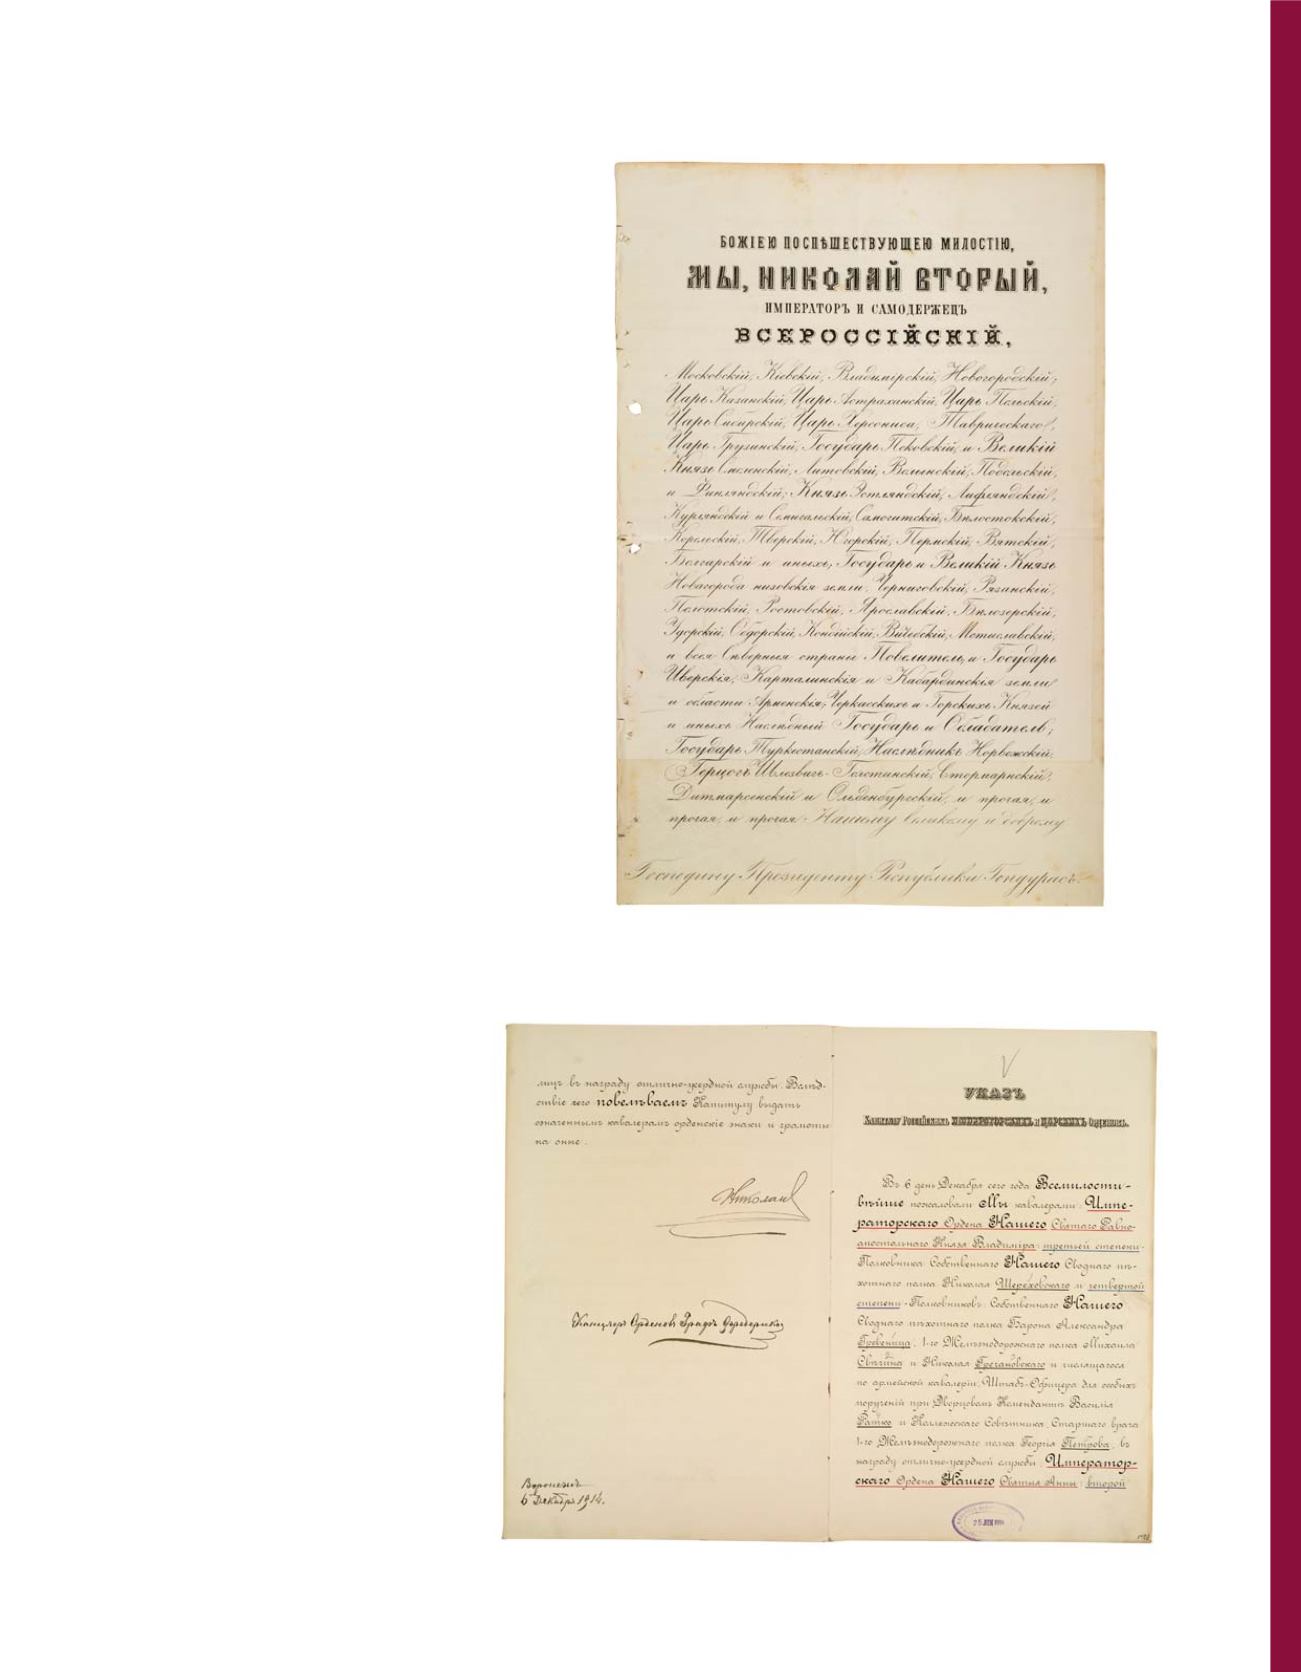 БОЖІЕЮ ПОСПѢШЕСТВУЮЩЕЮ МИЛОСТІЮ,
МЫ, НИКОЛАЙ ВТОРЫЙ,
ИМПЕРАТОРЪ И САМОДЕРЖЕЦЪ
ВСЕРОССІЙСКІЙ,
Московскій, Кіевскій, Владимірскій, Новогородскій;
Царь Казанскій, Царь Астраханскій, Царь Польскій,
Царь Сибирскій, Царь Херсониса, Таврическаго,
Царь Грузинскій, Государь Псковскій, и Великій
Князь Смоленскій, Литовскій, Волынскій, Подольскій,
и Финляндскій; Князь Эстляндскій, Лифляндскій,
Курляндскій и Семигальскій, Самогитскій, Бѣлостокскій,
Корельскій, Тверскій, Югорскій, Пермскій, Вятскій,
Болгарскій и иныхъ; Государь и Великій Князь
Новагорода низовскія земли, Черниговскій, Рязанскій,
Полотскій, Ростовскій, Ярославскій, Бѣлозерскій,
Удорскій, Обдорскій, Кондійскій, Витебскій, Мстиславскій,
и всея Сѣверныя страны Повелитель, и Государь
Иверскія, Карталинскія и Кабардинскія земли
и области Арменскія; Черкасскихъ и Горскихъ Князей
и иныхъ Наслѣдный Государь и Обладатель;
Государь Туркестанскій, Наслѣдникъ Норвежскій,
Герцогъ Шлезвигъ-Голстинскій, Стормарнскій,
Дитмарсенскій и Ольденбургскій, и прочая, и
прочая, и прочая. Нашему великому и доброму
Господину Президенту Республики Гондурасъ.
лицъ въ награду отлично-усердной службы. Вслѣд-
ствіе чего повелѣваемъ Капитулу выдать
означеннымъ кавалерамъ орденскіе знаки и грамоты
на оные.
Николай
Канцлеръ Орденовъ Графъ Фредериксъ
Воронежъ
6 Декабря 1914.
УКАЗЪ
Капитулу Россійскихъ ИМПЕРАТОРСКИХЪ и ЦАРСКИХЪ Орденовъ.
Въ 6 день Декабря сего года Всемилости-
вѣйше пожаловали Мы кавалерами: Импе-
раторскаго Ордена Нашего Святаго Равно-
апостольнаго Князя Владиміра: третьей степени-
Полковника Собственнаго Нашего Своднаго пѣ-
хотнаго полка Николая Шереховскаго и четвертой
степени - Полковниковъ: Собственнаго Нашего
Своднаго пѣхотнаго полка Барона Александра
Гревеница, 1-го Желѣзнодорожнаго полка Михаила
Свѣчина и Николая Гречановскаго и числящагося
по армейской кавалеріи, Штабъ-Офицера для особыхъ
порученій при Дворцовомъ Комендантѣ Василія
Ратко и Коллежскаго Совѣтника, Старшаго врача
1-го Желѣзнодорожнаго полка Георгія Петрова, въ
награду отлично-усердной службы; Император-
скаго Ордена Нашего Святыя Анны: второй